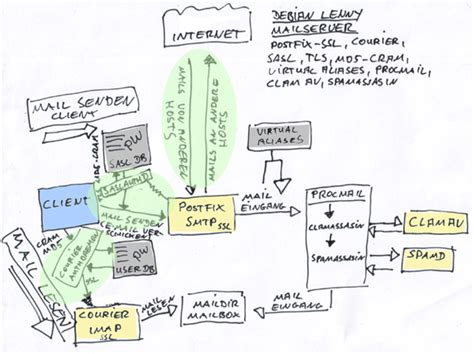 INTERNET
DEBIAN LENNY
MAILSERVER
POSTFIX-SSL, COURIER,
SASL, TLS, MD5-CRAM,
VIRTUAL ALIASES, PROCMAIL,
CLAM AV, SPAMASSASIN
MAIL SENDEN
CLIENT
MAILS VON ANDEREN
HOSTS
MAILS AN ANDERE
HOSTS
PW
SASL DB
SASLAUTHD
VIRTUAL
ALIASES
CLIENT
MAIL SENDEN
POSTFIX
SMTP SSL
MAIL
EINGANG
PROCMAIL
CLAMASSASIN
SPAMASSASIN
CLAMAV
SPAMD
CRAM
MD5
COURIER
AUTHDAEMON
SSL
PW
USER DB
MAIL LESEN
COURIER
IMAP
SSL
MAIL
LESEN
MAILDIR
MAILBOX
MAIL
EINGANG